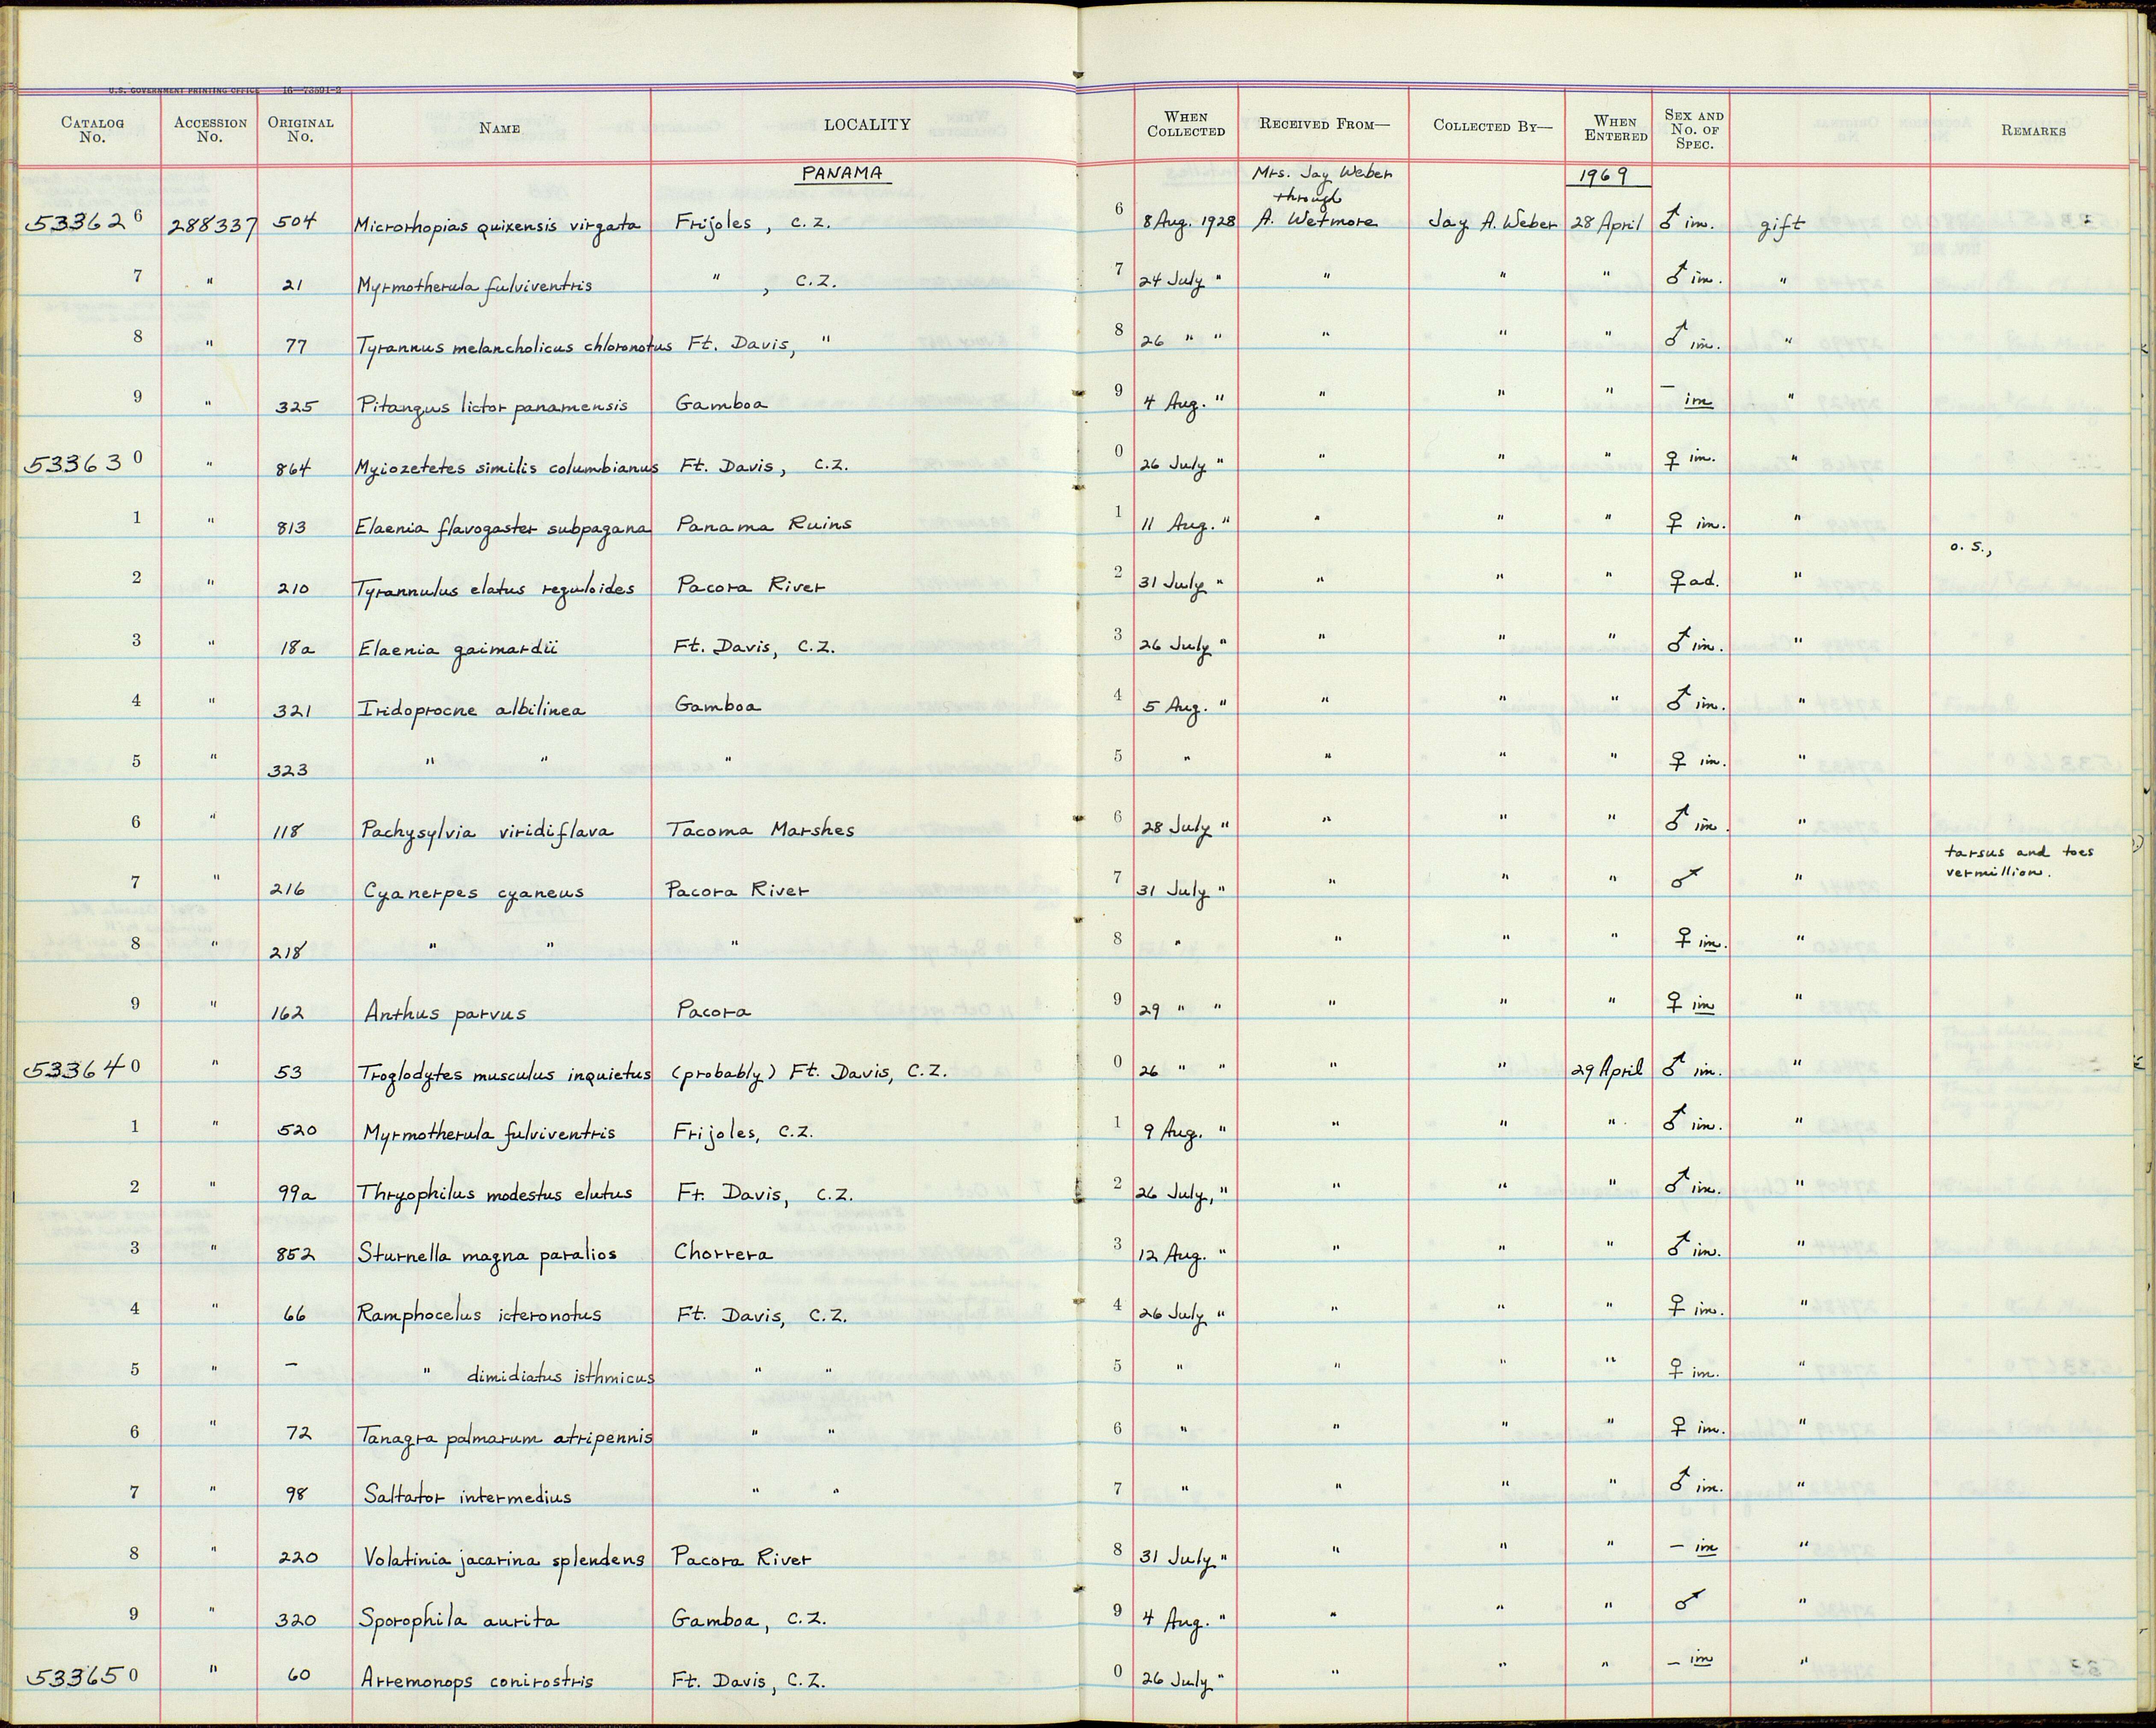 U.S. GOVERNMENT PRINTING OFFICE 16—73801-2
CATALOG No. ACCESSION No. ORIGINAL No. NAME LOCALITY WHEN COLLECTED RECEIVED FROM— COLLECTED BY— WHEN ENTERED SEX AND No. OF SPEC. REMARKS
PANAMA Mrs. Jay Weber 1969
through
533626 288337 504 Microrhopias quixensis virgata Frijoles, C.Z. 6 8 Aug. 1928 A. Wetmore Jay A. Weber 28 April ♂ im. gift
7 " 21 Myrmotherula fulviventris " , C.Z. 7 24 July " " " " ♂ im. "
8 " 77 Tyrannus melancholicus chloronotus Ft. Davis, " 8 26 " " " " " ♂ im. "
9 " 325 Pitangus lictor panamensis Gamboa 9 4 Aug. " " " " — im "
533630 " 864 Myiozetetes similis columbianus Ft. Davis, C.Z. 0 26 July " " " " ♀ im. "
1 " 813 Elaenia flavogaster subpagana Panama Ruins 1 11 Aug. " " " " ♀ im. "
2 " 210 Tyrannulus elatus reguloides Pacora River 2 31 July " " " " ♀ ad. " o. s.,
3 " 18a Elaenia gaimardii Ft. Davis, C.Z. 3 26 July " " " " ♂ im. "
4 " 321 Iridoprocne albilinea Gamboa 4 5 Aug. " " " " ♂ im. "
5 " 323 " " " 5 " " " " ♀ im. "
6 " 118 Pachysylvia viridiflava Tacoma Marshes 6 28 July " " " " ♂ im. "
7 " 216 Cyanerpes cyaneus Pacora River 7 31 July " " " " ♂ " tarsus and toes
vermillion.
8 " 218 " " " 8 " " " " ♀ im. "
9 " 162 Anthus parvus Pacora 9 29 " " " " " ♀ im "
533640 " 53 Troglodytes musculus inquietus (probably) Ft. Davis, C.Z. 0 26 " " " " 29 April ♂ im. "
1 " 520 Myrmotherula fulviventris Frijoles, C.Z. 1 9 Aug. " " " " ♂ im. "
2 " 99a Thryophilus modestus elutus Ft. Davis, C.Z. 2 26 July, " " " " ♂ im. "
3 " 852 Sturnella magna paralios Chorrera 3 12 Aug. " " " " ♂ im. "
4 " 66 Ramphocelus icteronotus Ft. Davis, C.Z. 4 26 July " " " " ♀ im. "
5 " — " dimidiatus isthmicus " " 5 " " " " ♀ im. "
6 " 72 Tanagra palmarum atripennis " " 6 " " " " ♀ im. "
7 " 98 Saltator intermedius " " 7 " " " " ♂ im. "
8 " 220 Volatinia jacarina splendens Pacora River 8 31 July " " " " — im "
9 " 320 Sporophila aurita Gamboa, C.Z. 9 4 Aug. " " " " ♂ "
533650 " 60 Arremonops conirostris Ft. Davis, C.Z. 0 26 July " " " " — im "